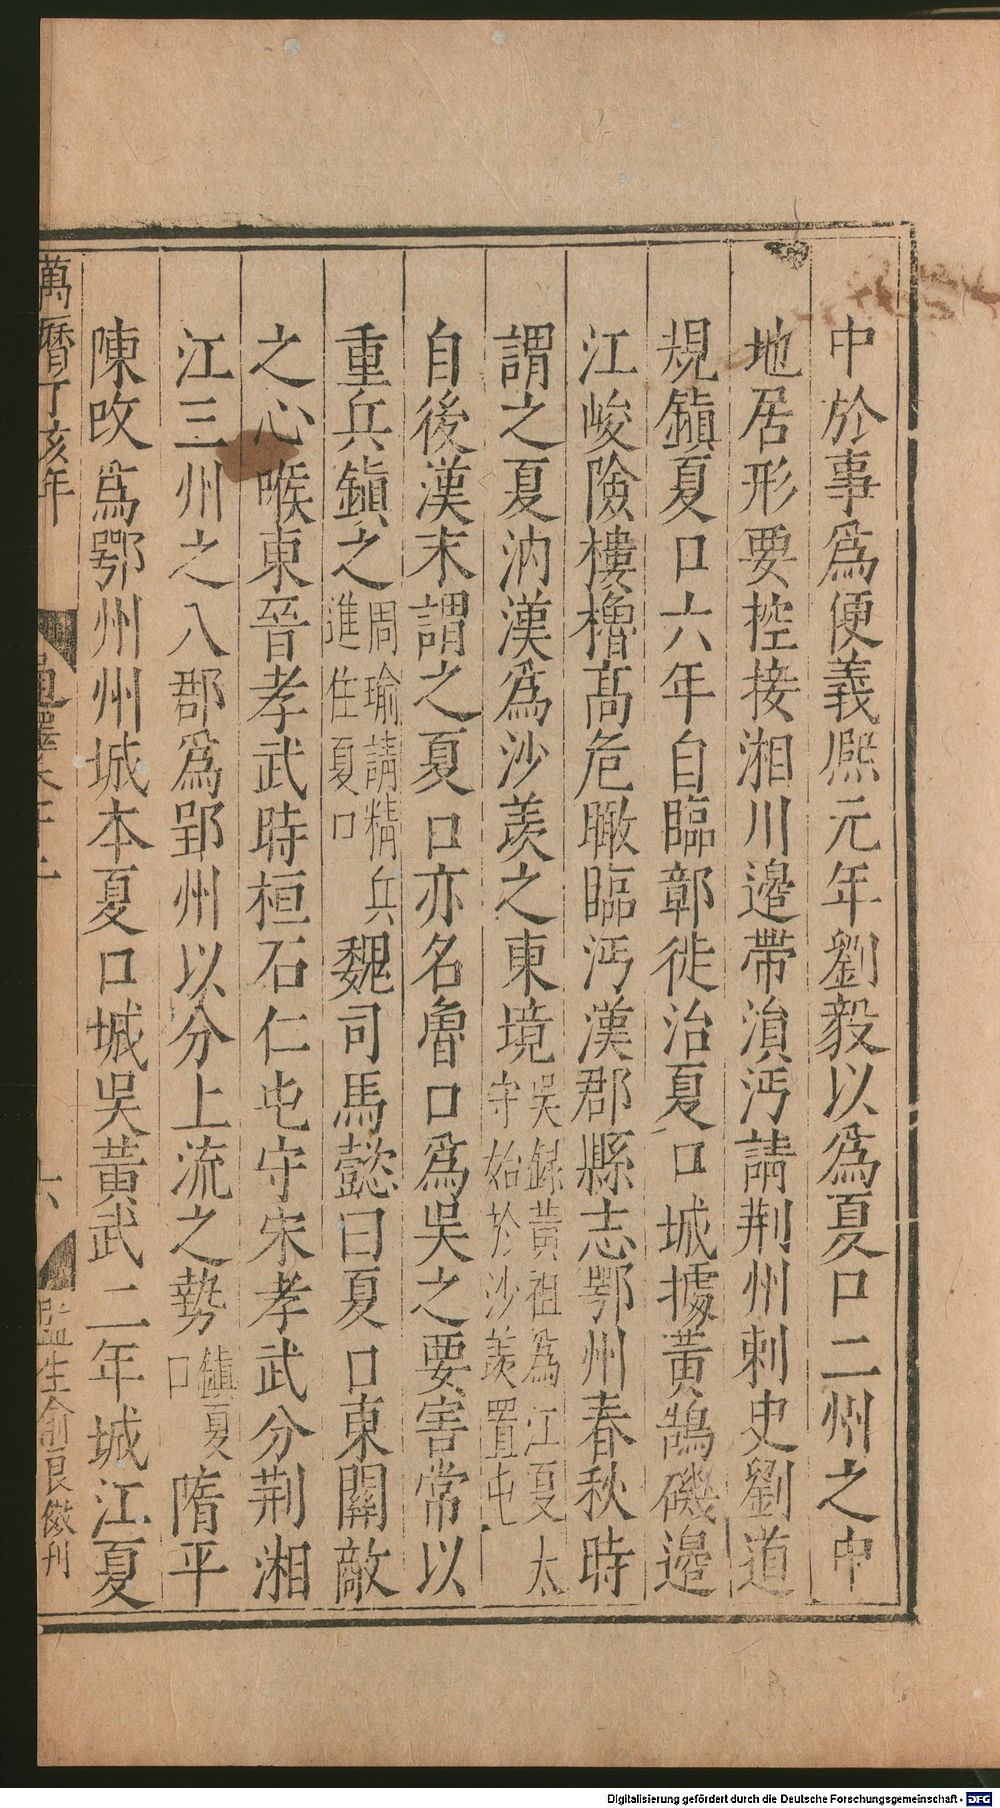 中於事爲便義熈元年劉毅以爲夏口二州之中
地居形要控接湘川邉帶溳沔請荆州刺史劉道
規鎭夏口六年自臨鄣徙治夏口城據黄鵠磯邉
江峻險樓櫓髙危瞰臨沔漢郡縣志鄂州春秋時
謂之夏汭漢爲沙羨之東境
吴録黄祖爲江夏太
守始於沙羨置屯
自後漢末謂之夏口亦名魯口爲吴之要害常以
重兵鎭之
周瑜請精兵
進住夏口
魏司馬懿曰夏口東關敵
之心喉東晉孝武時桓石仁屯守宋孝武分荆湘
江三州之八郡爲郢州以分上流之勢
鎭夏
口
隋平
陳改爲鄂州州城本夏口城吴黄武二年城江夏
萬曆丁亥年
通釋卷十二
六
監生俞良徽刊
Digitalisierung gefördert durch die Deutsche Forschungsgemeinschaft - DFG